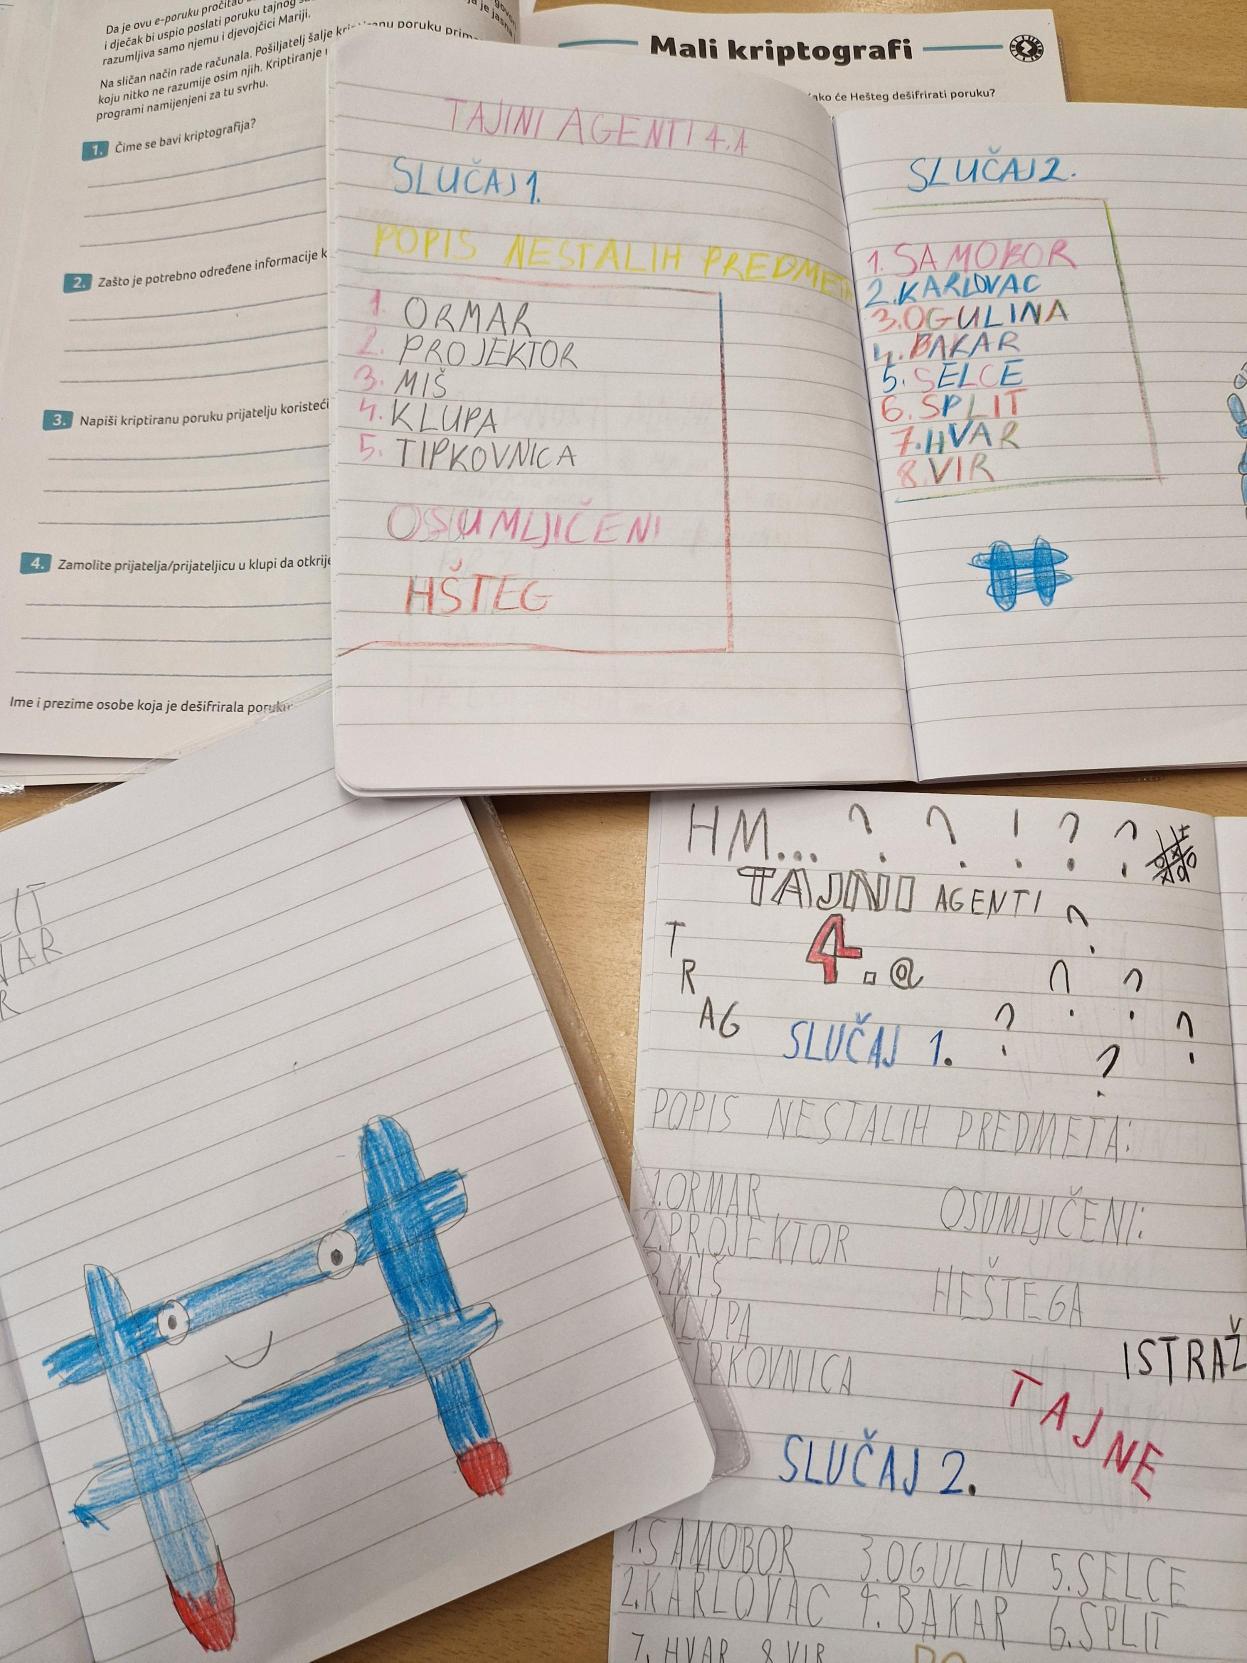 Da je ovu e-poruku pročitao
i dječak bi uspio poslati poruku tajnog
razumljiva samo njemu i djevojčici Mariji.
Na sličan način rade računala. Pošiljatelj šalje poruku
koju nitko ne razumije osim njih. Kriptiranje
programi namijenjeni za tu svrhu.
1. Čime se bavi kriptografija?
2. Zašto je potrebno određene informacije k
3. Napiši kriptiranu poruku prijatelju koristeći
4. Zamolite prijatelja/prijateljicu u klupi da otkrije
Ime i prezime osobe koja je dešifrirala poruku
Mali kriptografi
ako će Hešteg dešifrirati poruku?
TAJINI AGENTI 4.A
SLUČAJ 1.
POPIS NESTALIH PREDMETA
1. ORMAR
2. PROJEKTOR
3. MIŠ
4. KLUPA
5. TIPKOVNICA
OSUMLJIČENI
HŠTEG
SLUČAJ 2.
1. SAMOBOR
2. KARLOVAC
3. OGULINA
4. BAKAR
5. SELCE
6. SPLIT
7. HVAR
8. VIR
LIT
VAR
R
HM... ? ? ! ? ?
TAJNI AGENTI ?
TRAG
4.@ ? ?
SLUČAJ 1. ? ? ?
POPIS NESTALIH PREDMETA:
1. ORMAR
2. PROJEKTOR
3. MIŠ
KLUPA
TIPKOVNICA
OSUMLJIČENI:
HEŠTEGA
ISTRAŽ
TAJNE
SLUČAJ 2.
1. SAMOBOR 3. OGULIN 5. SELCE
2. KARLOVAC 4. BAKAR 6. SPLIT
7. HVAR 8. VIR